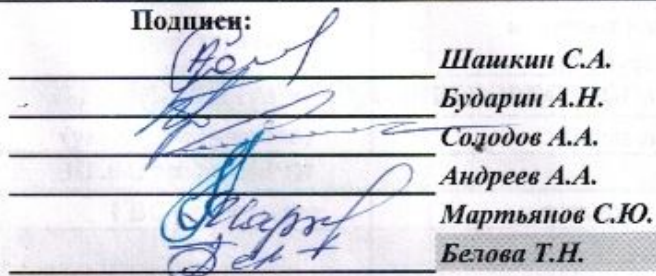 Подписи:
Шашкин С.А.
Бударин А.Н.
Солодов А.А.
Андреев А.А.
Мартьянов С.Ю.
Белова Т.Н.